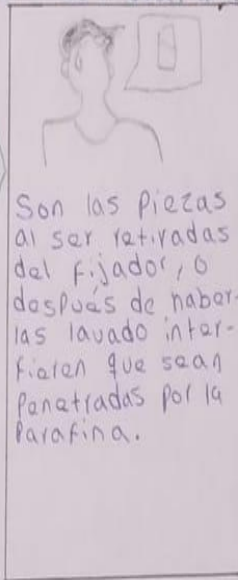 Son las Piezas
al ser retiradas
del fijador, o
después de haber-
las lavado inter-
fieren que sean
Penetradas por la
Parafina.